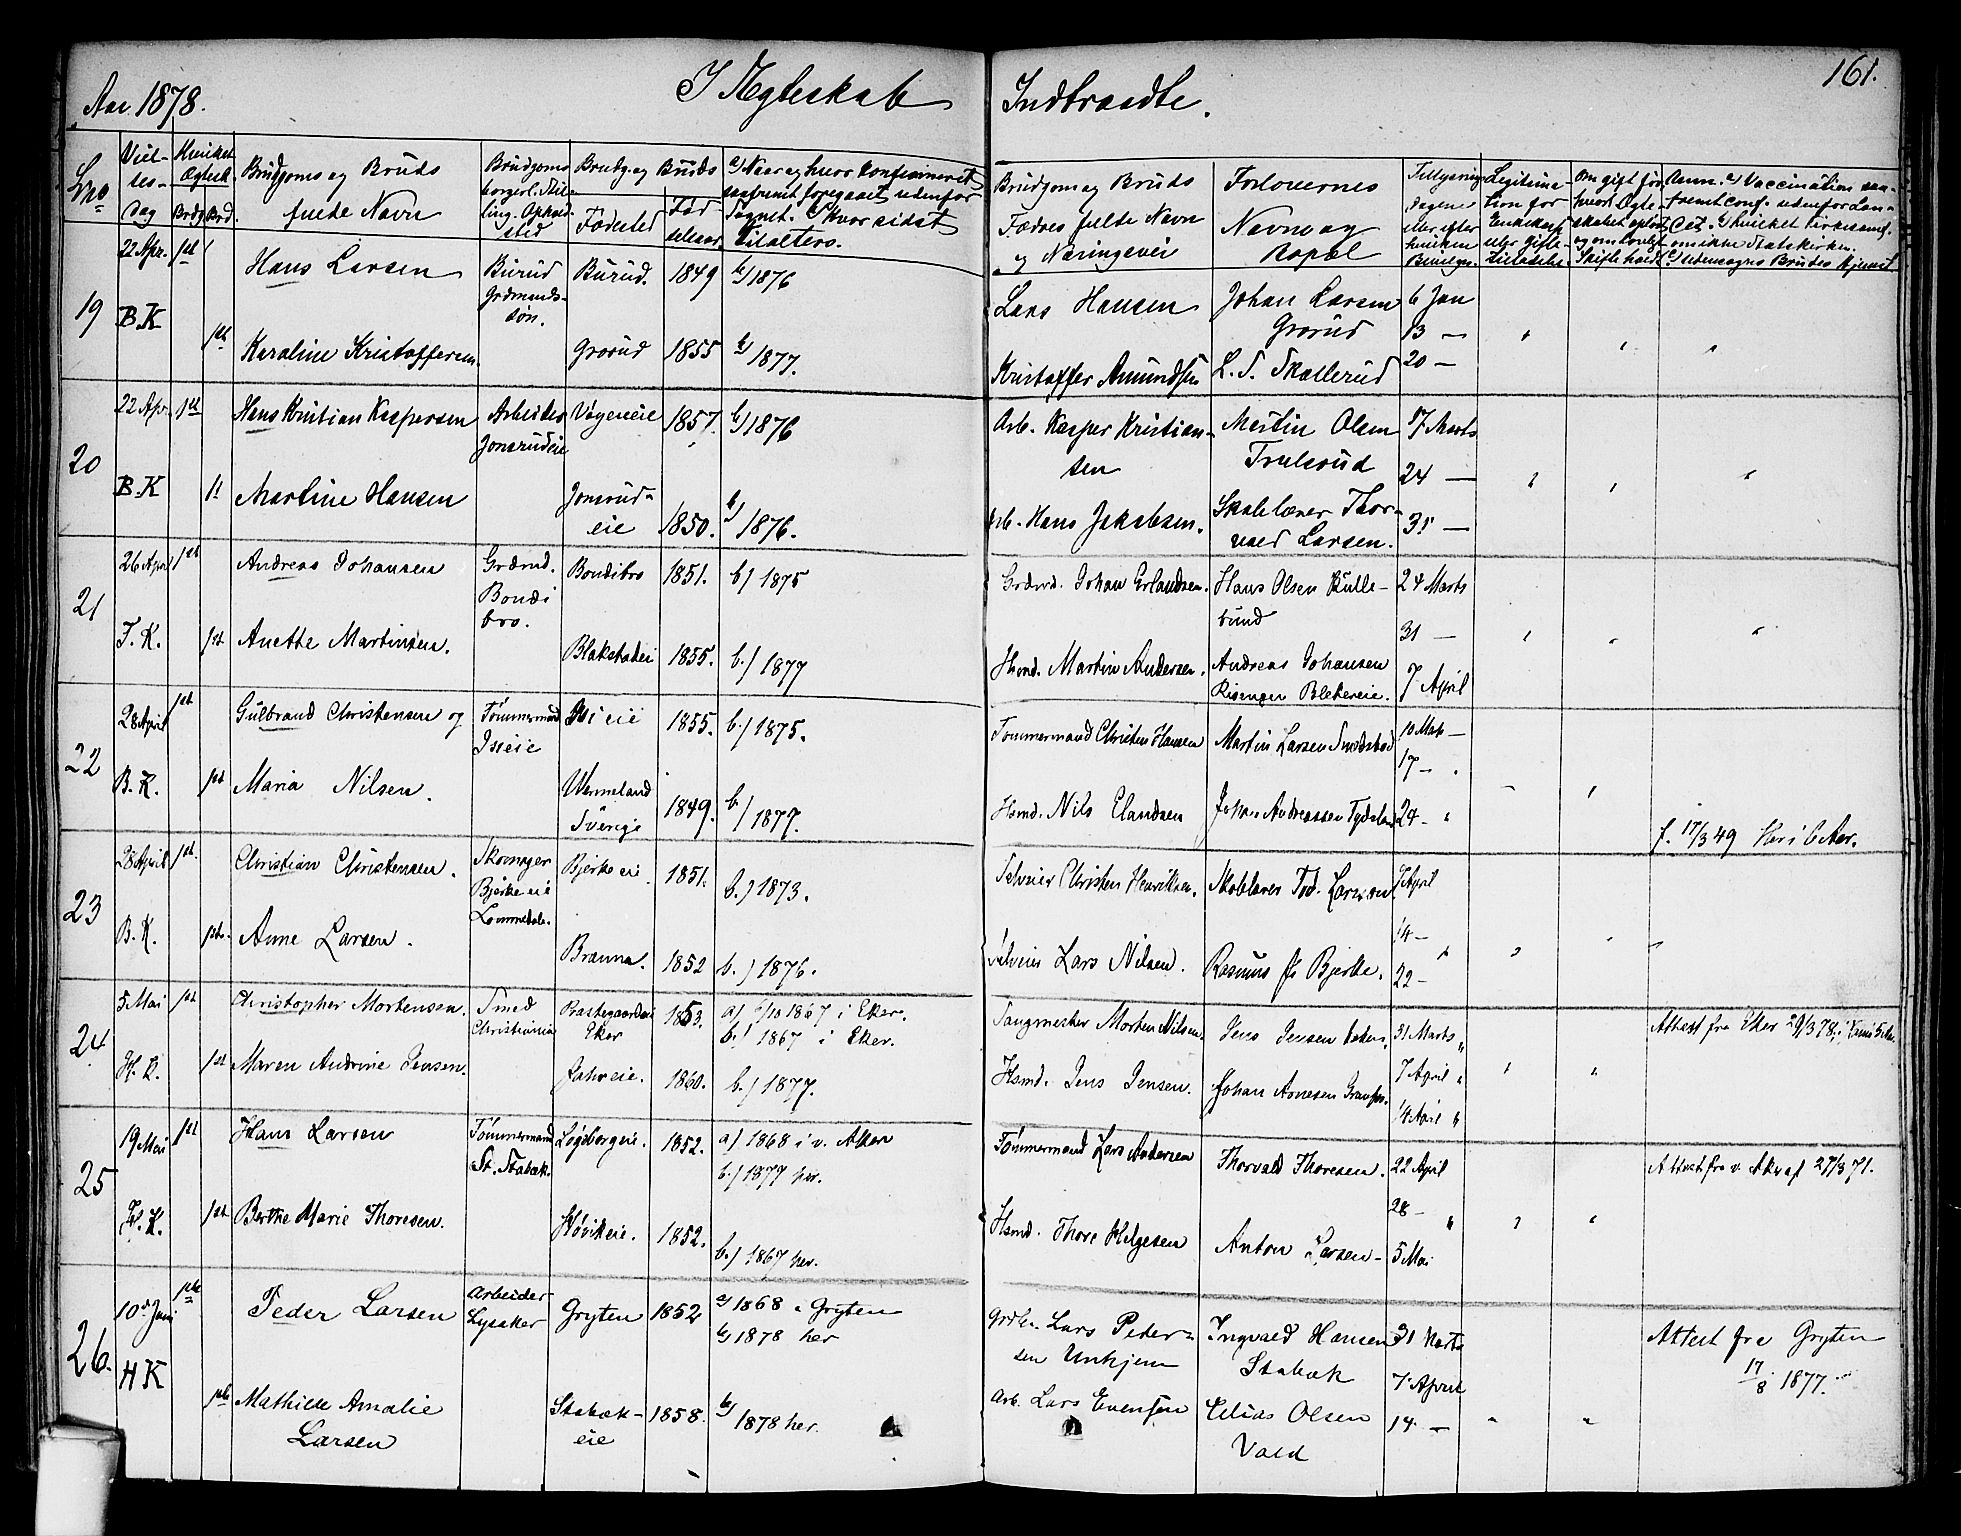 Aar 1878.
I Ægteskab
Indtraadte.
161.
No
Viel-
ses-
dag
Hvilket
Ægtesk.
Brdg. Brd.
Brudgoms og Bruds
fulde Navn
Brudgoms
borgerl. Stil-
ling. Opholds-
sted
Brudg. og Bruds
Fødested
Fød-
selsaar
a) Naar og hvor konfirmeret
saafremt foregaaet udenfor
Sognet. b) hvor sidst
tilalters.
Brudgoms og Bruds
Fædres fulde Navn
og Næringsvei
Forlovernes
Navn og
Bopæl
Om gift før
19
22 Apr.
B.K
1st
Hans Larsen
Burud
Grdmands-
søn.
Burud.
1849
b) 1876
Lars Hansen
Johan Larsen
Grorud
6 Jan
13 —
20 —
1st
Karoline Kristoffersen
Grorud
1855
b) 1877.
Kristoffer Amundsen
L. S. Skallerud
20
22 Apr.
B.K
1st
Hans Kristian Kaspersen
Arbeider
Jonsrudeie
Vøyeneie
1857.
b) 1876
Arb. Kasper Kristian-
sen
Martin Olsen
Trulsrud
17 Marts
24 —
31 —
Martine Hansen
Jonsrud-
eie
1850.
b) 1876.
Arb. Hans Jakobsen.
Skolelærer Thor-
vald Larsen.
21
26 Apr
F.K.
1st
Andreas Johansen
Grdbrud.
Bondi
bro.
Bondibro
1851.
b) 1875
Johan Erlandsen.
Hans Olsen Bulle-
rund
24 Marts
31 —
7 April
1st
Anette Martinsen.
Blakstadei
1855.
b.) 1877
Hsmd. Martin Andersen.
Andreas Johansen
Risengen Blekereie.
22
28 April
B.K.
1st
Gulbrand Christensen og
Tømmermand
Isieie
Isi eie
1855.
b.) 1875.
Tømmermand Christen Hansen
Martin Larsen
10 Mts —
17 —
24 — "
1st
Maria Nilsen.
Wermeland
Sverige
1849.
b.) 1877.
Hsmd. Nils Elandsen
Johan Andreassen
f. 17/3 49 Her i 6 Aar.
23
28 April
B.K.
1st.
Christian Christensen.
Skomager
Bjerke eie
Lommedale.
Bjerke ei
1851.
b.) 1873.
Selveier Christen Henriksen.
Skolelærer Tod. Larsen
7 April
14 —
22 —
1st.
Anne Larsen.
Brenna.
1852
b.) 1876.
Selveier Lars Nilsen.
Rasmus Bjerke.
24
5 Mai
H.K.
1st
Christopher Mortensen.
Smed
Christiania
Eker
1853.
a) 6/10 1867 i Eker.
b.) 1867 i Eker.
Morten Nilsen.
Jens Jensen
31 Marts "
7 April "
14 April "
Attest fra Eker 29/3 78.
1st
Maren Andrine Jensen.
Jahreie.
1860.
b.) 1877.
Hsmd. Jens Jensen.
Johan
25
19 Mai
H.K.
1st
Hans Larsen
Tømmermand
St. Stabæk.
Løgebergeie.
1852.
a) 1868 i v. Aker
b.) 1877 her.
Tømmermand Lars Andersen
Thorvald Thoresen.
22 April
28 — "
5 Mai
Attest fra v. Aker af 27/3 71.
1st
Berthe Marie Thoresen.
Høvikeie.
1852.
b.) 1867 her.
Hsmd. Thore Helgesen
Anton Larsen —
26.
10de Juni
HK
1ste
Peder Larsen
Arbeider
Lysaker
Gryten
1852
a) 1868 i Gryten
b) 1878 her
Lars Peder-
sen Unhjem
Ingvald Hansen
Stabæk
31 Marts
7 April
14 —
Attest fra Gryten
17/8 1877.
1ste
Mathilde Amalie
Larsen
Stabæk-
eie
1858.
b)
1878 her.
Arb. Lars Evensen
Elias Olsen
Vold